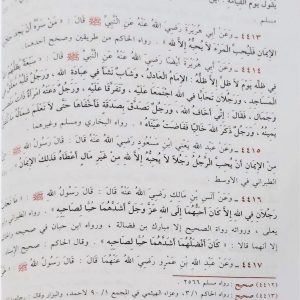 يقول يوم القيامة
مسلم .
٤٤١٣ ـ وَعَنْ أَبِي هُرَيْرَةَ رَضِيَ اللهُ عَنْهُ عَنِ النَّبِيِّ ﷺ قَالَ: « مَنْ سَرَّهُ أَنْ يَجِدَ
الإِيمَانِ فَلْيُحِبَّ المَرْءَ لَا يُحِبُّهُ إِلَّا لِلهِ » . رواه الحاكم من طريقين وصحح أحدهما.
٤٤١٤ ـ وَعَنْ أَبِي هُرَيْرَةَ أَيْضًا رَضِيَ اللهُ عَنْهُ عَنِ النَّبِيِّ ﷺ قَالَ: « سَبْعَةٌ
فِي ظِلِّهِ يَوْمَ لَا ظِلَّ إِلَّا ظِلُّهُ: الإِمَامُ العَادِلُ، وَشَابٌّ نَشَأَ فِي عِبَادَةِ اللهِ، وَرَجُلٌ قَلْبُهُ
المَسَاجِدِ، وَرَجُلَانِ تَحَابَّا فِي اللهِ اجْتَمَعَا عَلَيْهِ، وَتَفَرَّقَا عَلَيْهِ، وَرَجُلٌ دَعَتْهُ امْرَأَةٌ ذَاتُ
وَجَمَالٍ، فَقَالَ: إِنِّي أَخَافُ اللهَ، وَرَجُلٌ تَصَدَّقَ بِصَدَقَةٍ فَأَخْفَاهَا حَتَّى لَا تَعْلَمَ شِمَالُهُ مَا
يَمِينُهُ، وَرَجُلٌ ذَكَرَ اللهَ خَالِيًا فَفَاضَتْ عَيْنَاهُ » . رواه البخاري ومسلم وغيرهما
٤٤١٥ ـ وَعَنْ عَبْدِ اللهِ يَعْنِي ابْنَ مَسْعُودٍ رَضِيَ اللهُ عَنْهُ قَالَ: قَالَ رَسُولُ اللهِ
مِنَ الإِيمَانِ أَنْ يُحِبَّ الرَّجُلُ رَجُلًا لَا يُحِبُّهُ إِلَّا لِلهِ مِنْ غَيْرِ مَالٍ أَعْطَاهُ فَذَلِكَ الإِيمَانُ »
الطبراني في الأوسط .
٤٤١٦ ـ وَعَنْ أَنَسِ بْنِ مَالِكٍ رَضِيَ اللهُ عَنْهُ قَالَ: قَالَ رَسُولُ اللهِ ﷺ
رَجُلَانِ فِي اللهِ إِلَّا كَانَ أَحَبُّهُمَا إِلَى اللهِ عَزَّ وَجَلَّ أَشَدَّهُمَا حُبًّا لِصَاحِبِهِ » . رواه
يعلى، ورواته رواة الصحيح إلا مبارك بن فضالة، ورواه ابن حبان في صحيحه
إلا أنهما قالا: « كَانَ أَفْضَلُهُمَا أَشَدَّهُمَا حُبًّا لِصَاحِبِهِ » . وقال الحاكم: صحيح
٤٤١٧ ـ وَعَنْ عَبْدِ اللهِ بْنِ عَمْرٍو رَضِيَ اللهُ عَنْهُمَا قَالَ: قَالَ رَسُولُ اللهِ ﷺ
(٤٤١٢) صحيح: رواه مسلم ٢٥٦٦ .
(٤٤١٣) صحيح: رواه الحاكم ٣/١، وعزاه الهيثمي في المجمع ٩٠/١ لأحمد، والبزار وقال: